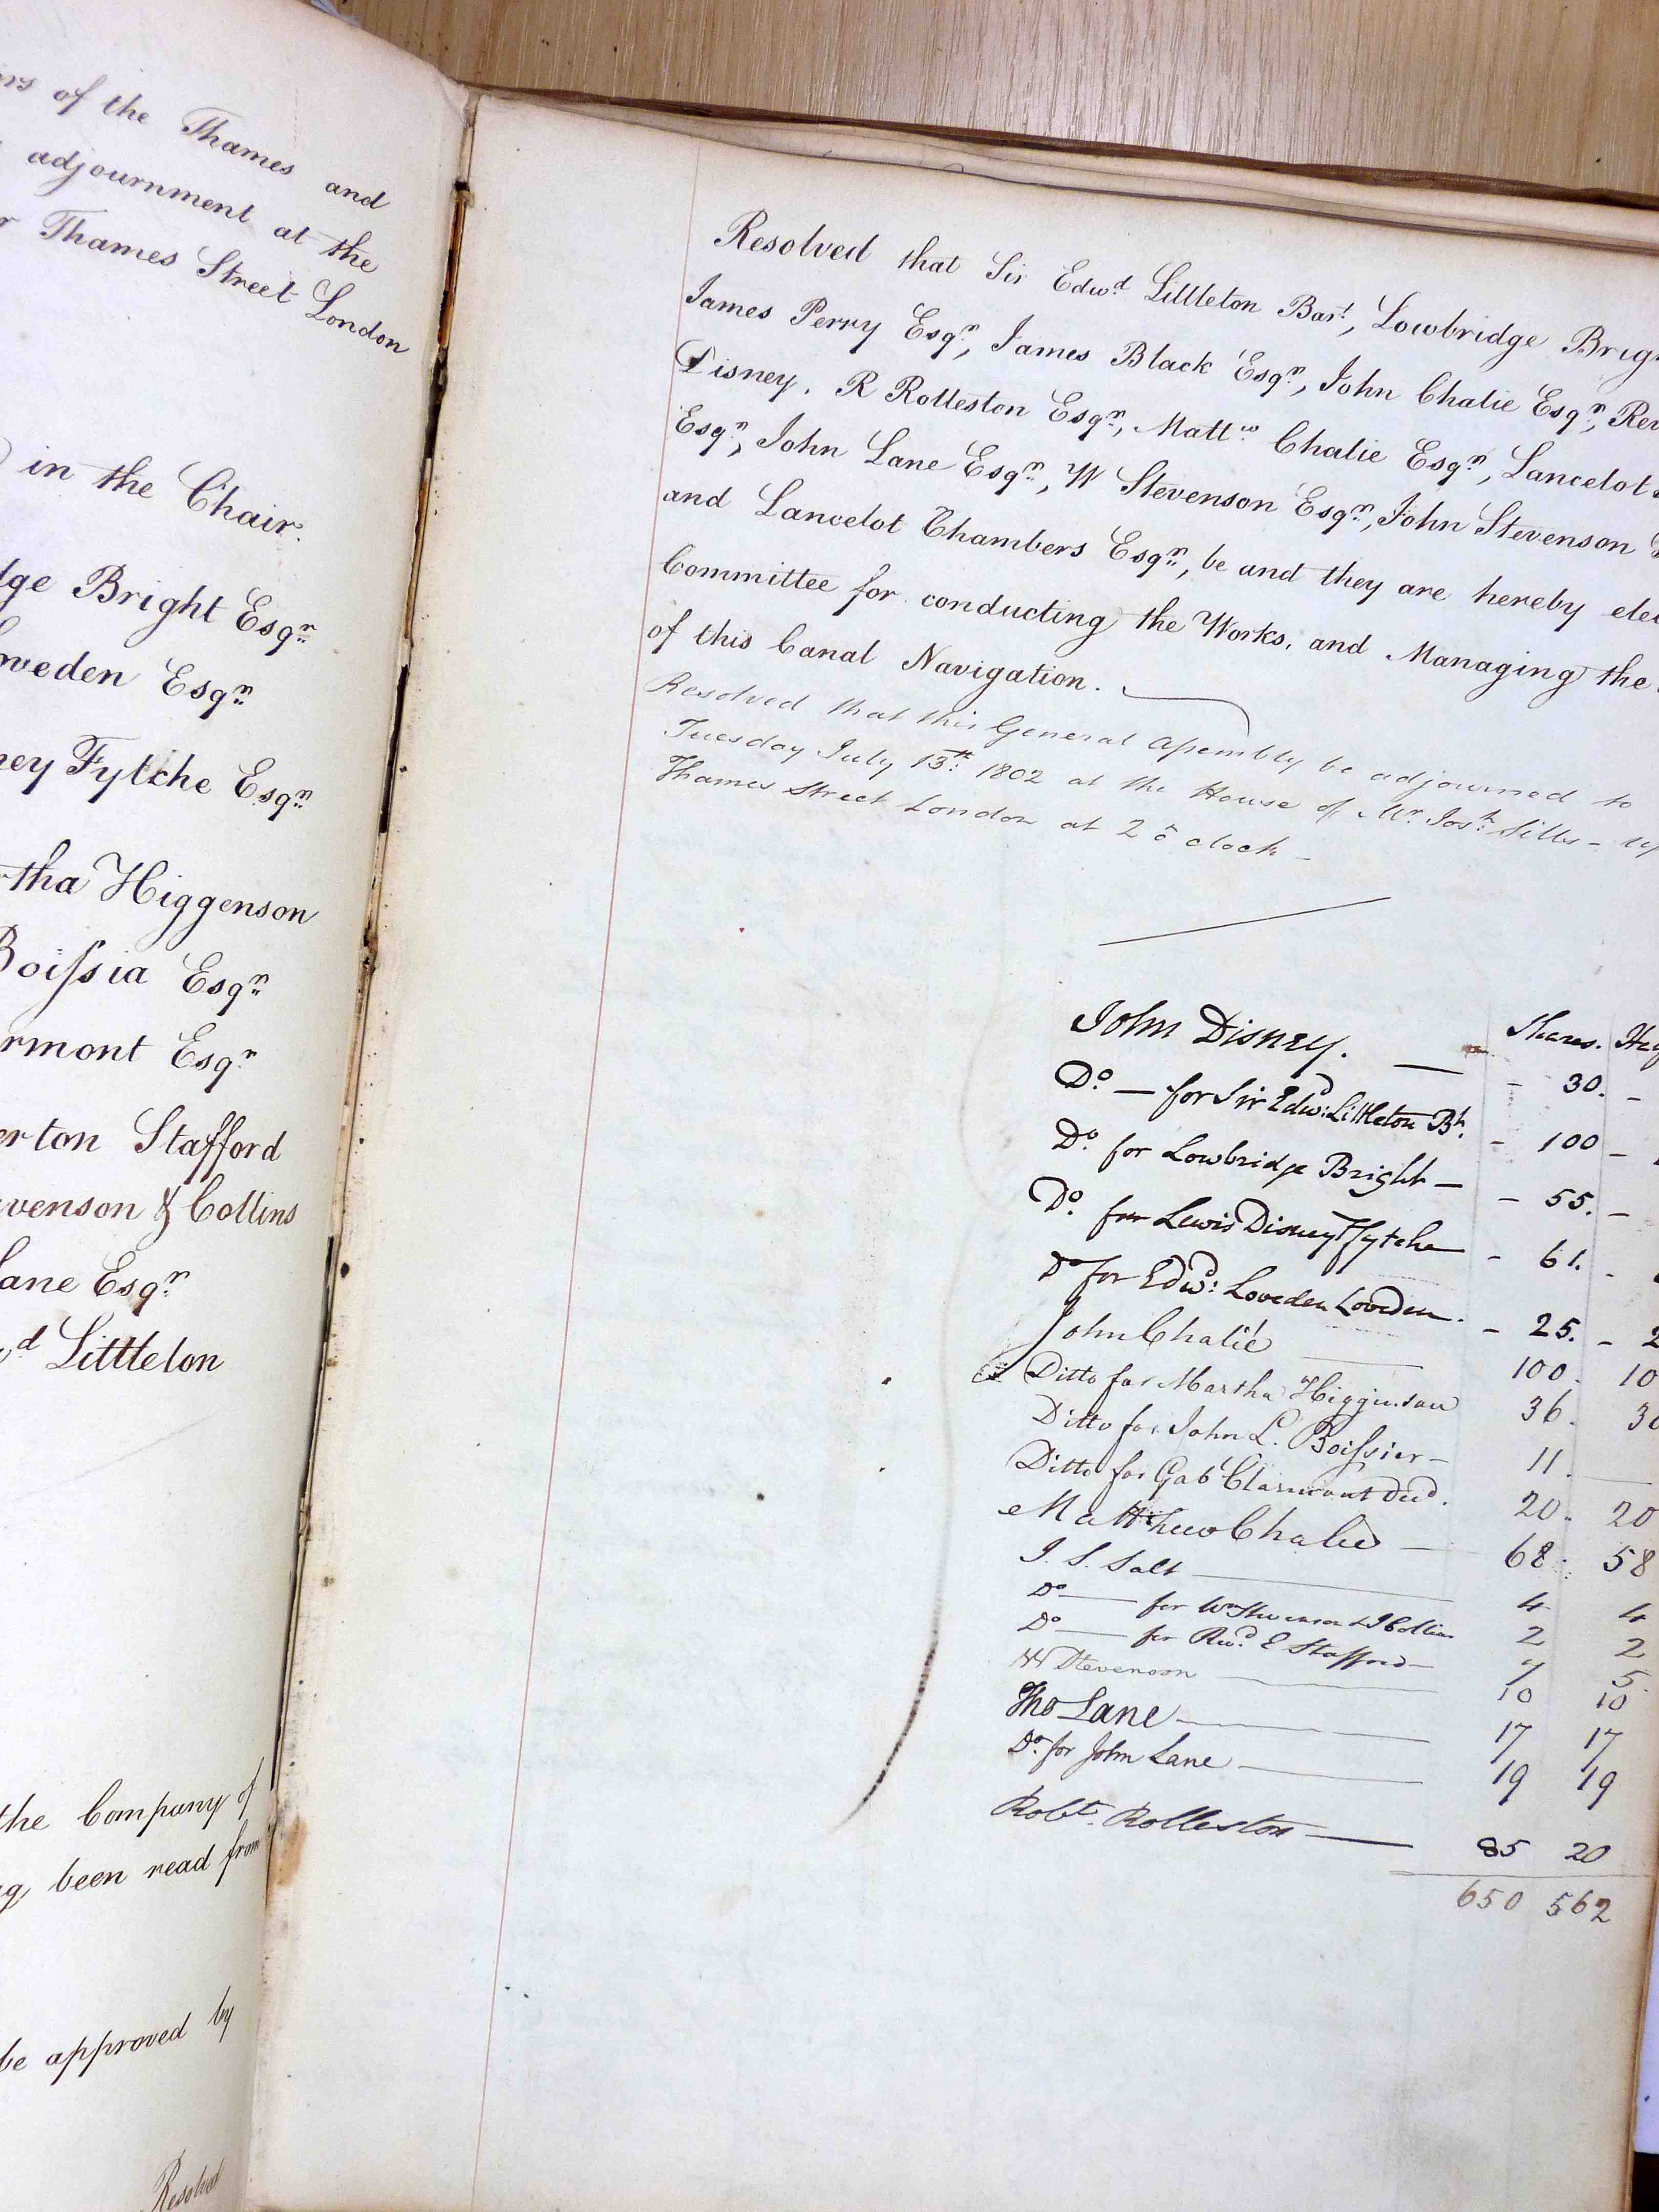 of the Thames and
adjournment at the
Thames Street London
in the Chair.
Bright Esqr
Esqr
Fytche Esqr
Higgenson
Boissia Esqr
Esqr
Stafford
& Collins
Esqr
Littleton
the Company of
been read from
be approved by
Resolved
Resolved that Sir Edwd Littleton Bart, Lowbridge
James Perry Esqr, James Black Esqr, John Chalie Esqr,
Disney, R Rolleston Esqr, Mattw Chalie Esqr, Lancelot
Esqr, John Lane Esqr, W Stevenson Esqr, John Stevenson
and Lancelot Chambers Esqr, be and they are hereby
Committee for conducting the Works, and Managing the
of this Canal Navigation.
Resolved that this General Assembly be adjourned to
Tuesday July 13th 1802 at the House of Mr Josh Sills -
Thames Street London at 2 o clock -
Shares.
John Disney. - 30. -
Do - for Sir Edwd: Littleton Bt. - 100 -
Do for Lowbridge Bright - - 55. -
Do for Lewis Disney Ffytche - 61. -
Do for Edwd: Loveden Loveden. - 25. - 2
John Chalié 100. 10
Ditto for Martha Higginson 36. 3
Ditto for John L. Boissier - 11.
Ditto for Gabl Clarmont Decd. 20. 20
Matthew Chalié 68 58
I. S. Salt 4 4
Do for Wm Stevenson & J Collins 2 2
Do for Revd E Stafford 7 5
W Stevenson 10 10
Tho Lane 17 17
Do for John Lane 19 19
Robt. Rolleston 85 20
650 562